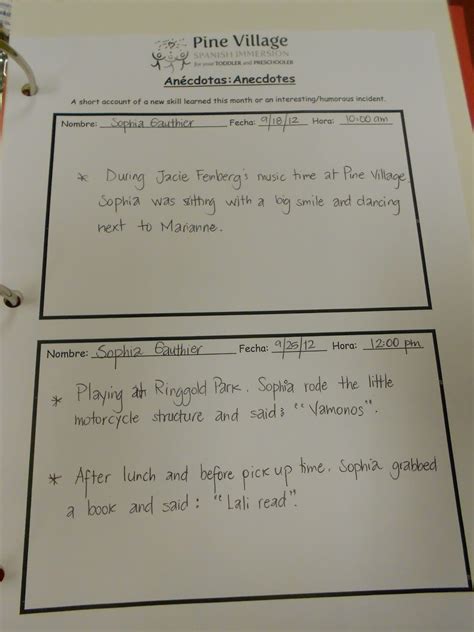 Pine Village
SPANISH IMMERSION
for your TODDLER and PRESCHOOLER
Anécdotas:Anecdotes
A short account of a new skill learned this month or an interesting/humorous incident.
Nombre: Sophia Gauthier Fecha: 9/18/12 Hora: 10:00 am
* During Jacie Fenberg's music time at Pine Village
Sophia was sitting with a big smile and dancing
next to Marianne.
Nombre: Sophia Gauthier Fecha: 9/25/12 Hora: 12:00 pm
* Playing at Ringgold Park. Sophia rode the little
motorcycle structure and said: "Vamonos".
* After lunch and before pick up time. Sophia grabbed
a book and said: "Lali read".